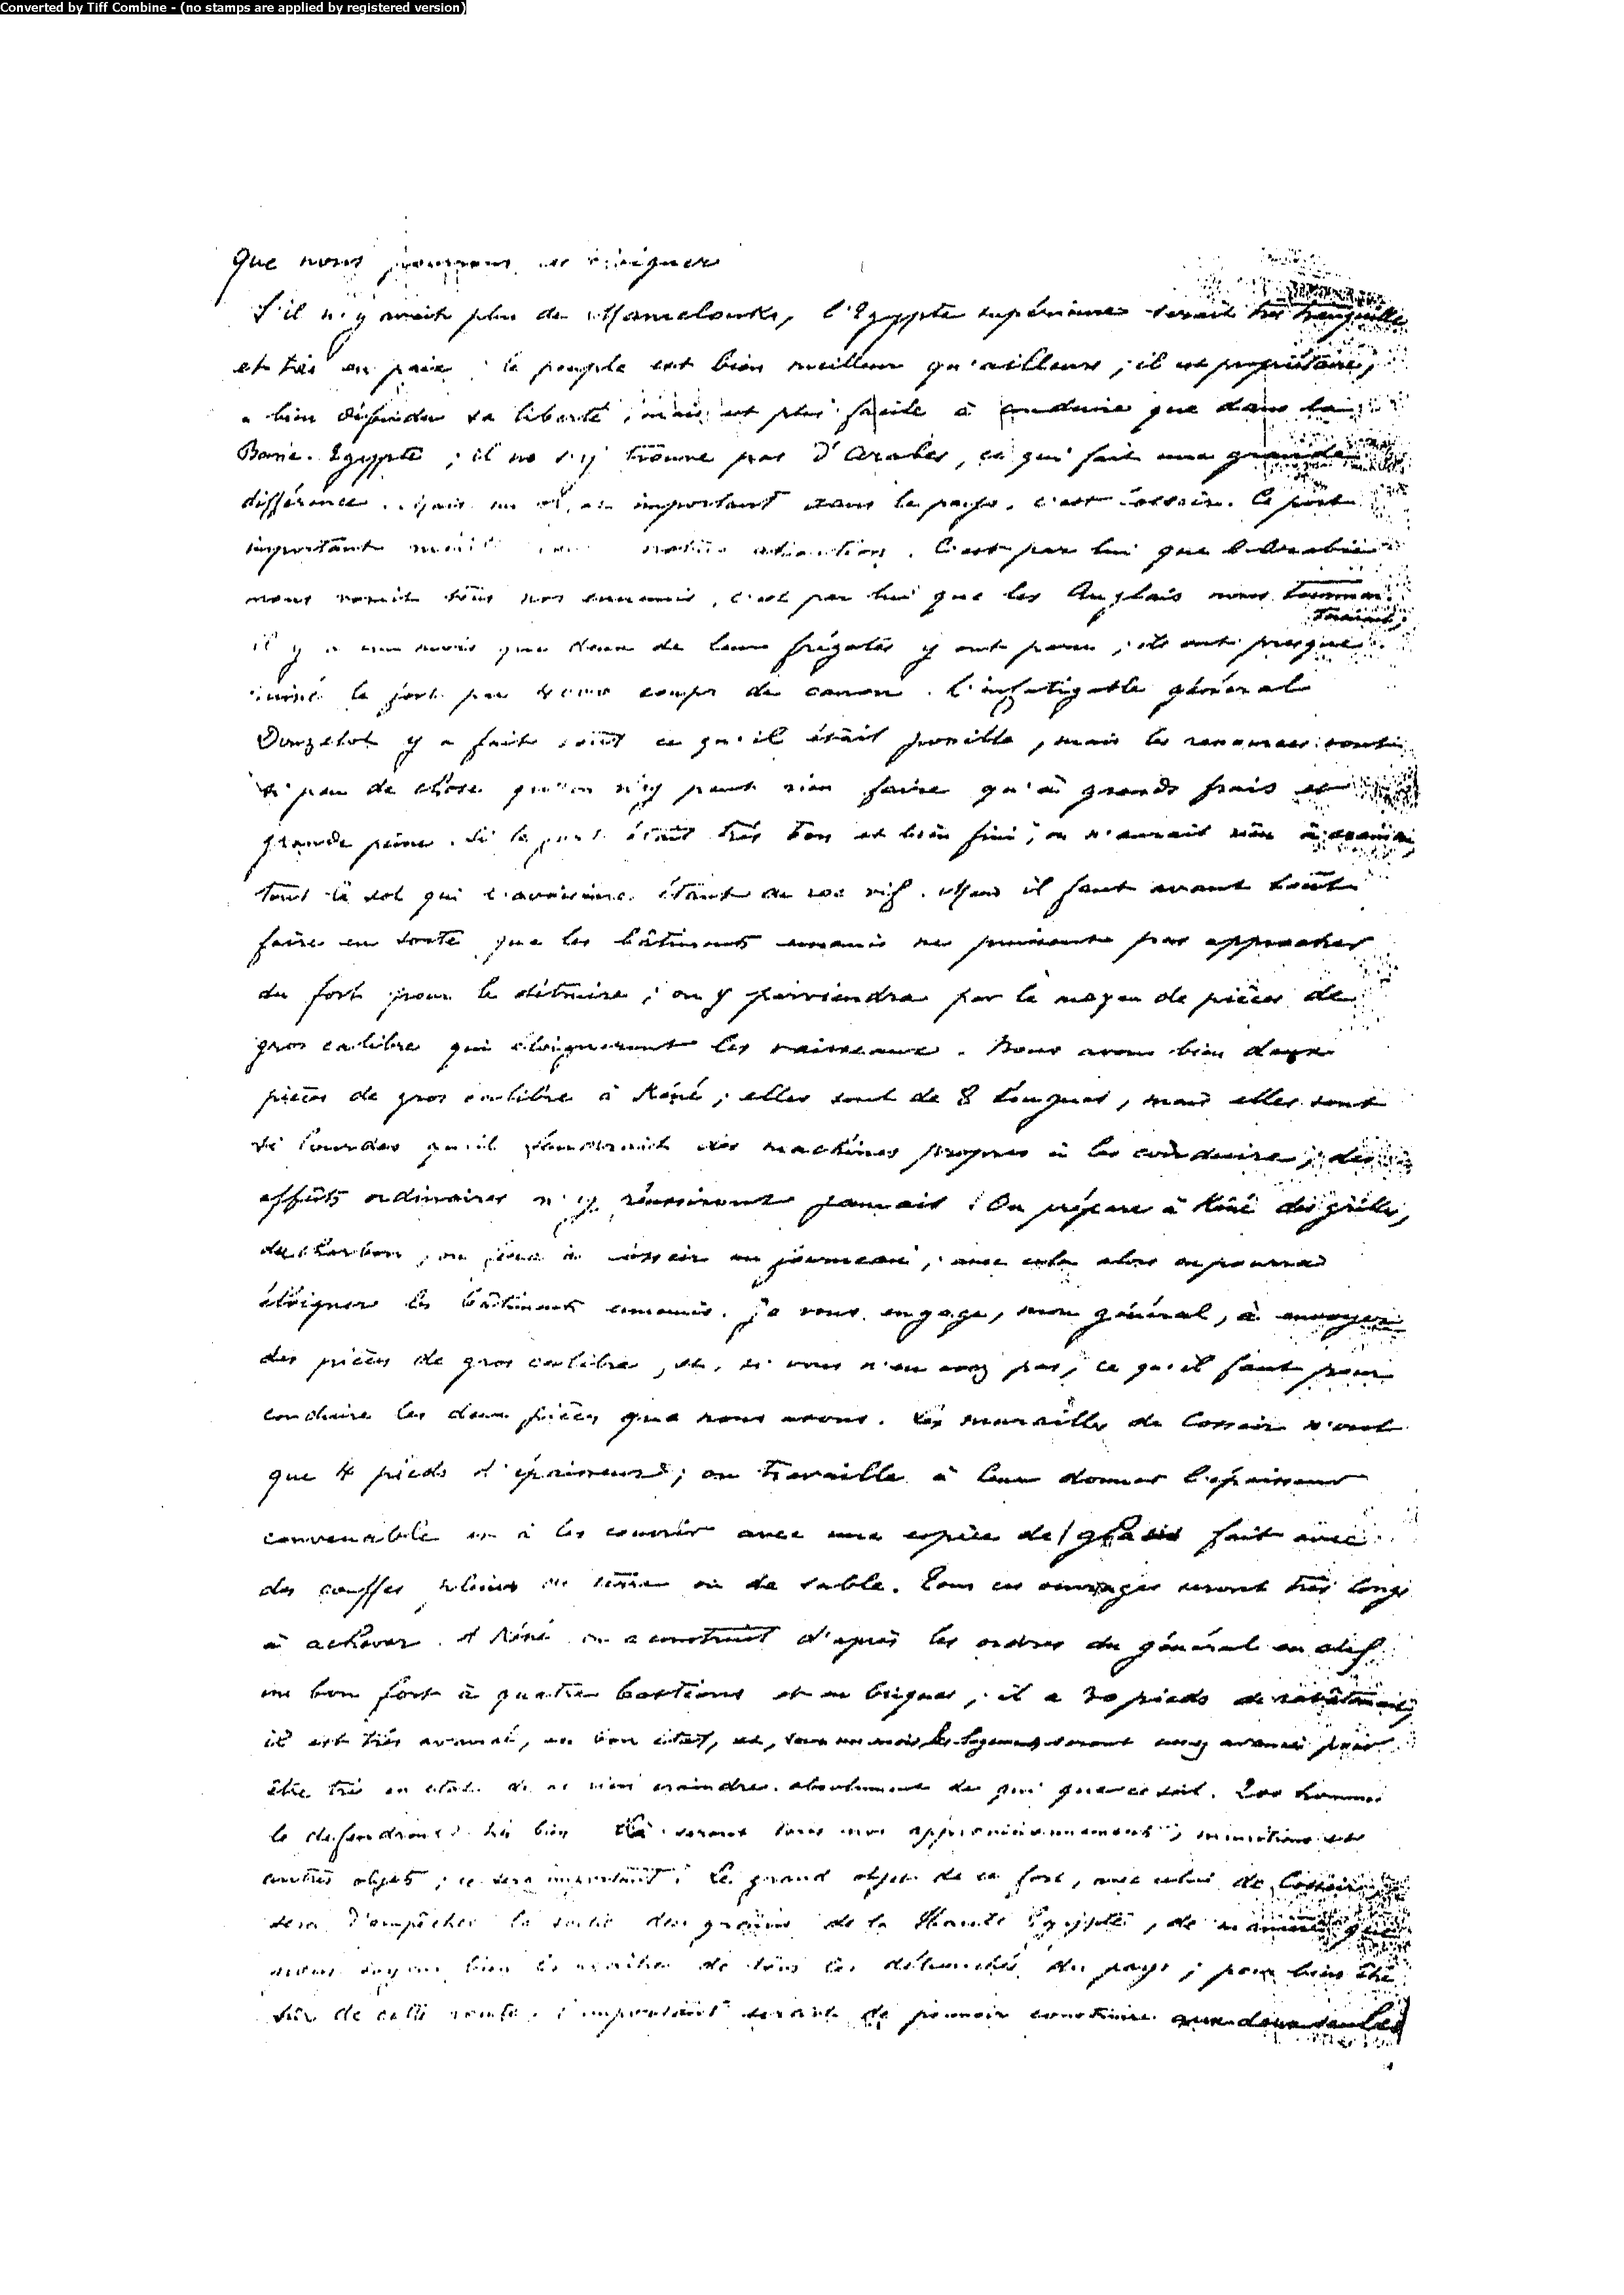 Converted by Tiff Combine - (no stamps are applied by registered version)
que nous pourrons
S'il n'y avait plus de Mamelouks, l'Egypte supérieure serait très tranquille
et très en paix ; le peuple est bien meilleur qu'ailleurs ; il est propriétaire,
a bien défendu sa liberté, mais est plus facile à conduire que dans la
Basse-Egypte ; il ne s'y trouve pas d'Arabes, ce qui fait une grande
différence. Mais un important dans le pays, c'est Cosseir. Ce port
important notre attention. C'est par lui que l'Arabie
nous vomit tous nos ennemis, c'est par lui que les Anglais nous
il y a un mois que deux de leurs frégates y ont paru ; ils ont presque
ruiné le fort par 4000 coups de canon. L'infatigable général
Donzelot y a fait tout ce qu'il était possible, mais les ressources sont
si peu de chose qu'on n'y peut rien faire qu'à grands frais et
grande peine. Si le port était très bon et bien fini, on n'aurait rien à craindre,
tout le sol qui l'avoisine étant de roc vif. Mais il faut avant tout
faire en sorte que les bâtiments ennemis ne puissent pas approcher
du fort pour le détruire ; on y parviendra par le moyen de pièces de
gros calibre qui éloigneront les vaisseaux. Nous avons bien deux
pièces de gros calibre à Kéné ; elles sont de 8 longues, mais elles sont
si lourdes qu'il faudrait des machines propres à les conduire ; des
affûts ordinaires n'y réussiront jamais. On prépare à Kéné des grilles,
du charbon, on fera à Cosseir un fourneau ; avec cela alors on pourra
éloigner les bâtiments ennemis. Je vous engage, mon général, à envoyer
des pièces de gros calibre, et, si vous n'en avez pas, ce qu'il faut pour
conduire les deux pièces que nous avons. Les murailles de Cosseir n'ont
que 4 pieds d'épaisseur ; on travaille à leur donner l'épaisseur
convenable et à les couvrir avec une espèce de glacis fait avec
des couffes pleines de terre ou de sable. Tous ces ouvrages seront très longs
à achever. A Kéné on a construit d'après les ordres du général en chef
un bon fort à quatre bastions et en briques ; il a 20 pieds de
il est très avancé, en bon état, et, sous un mois, les logements seront assez avancés pour
être très en état de ne rien craindre absolument de qui que ce soit. 200 hommes
le défendront très bien. Là seront tous nos approvisionnements, munitions et
autres objets ; ce sera important. Le grand objet de ce fort, avec celui de Cosseir,
sera d'empêcher la sortie des grains de la Haute Egypte, de manière que
nous soyons bien les maîtres de tous les débouchés du pays ; pour bien être
sûr de cette route, l'important serait de pouvoir construire aux deux seules